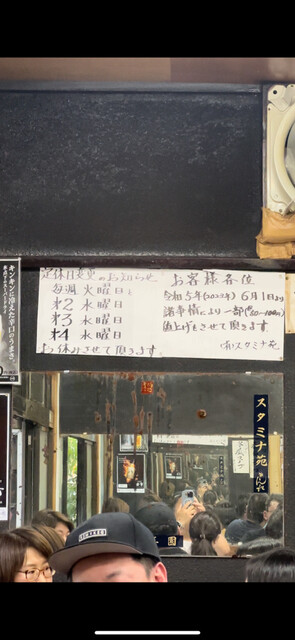 定休日変更のお知らせ
毎週火曜日と
第2水曜日
第3水曜日
第4水曜日
お休みさせて頂きます。
お客様各位
令和5年(2023年)6月1日より
諸事情により一部(50〜100円)
値上げをさせて頂きます
(有)スタミナ苑
キンキンに冷えた辛口のうまさ。
スタミナ苑